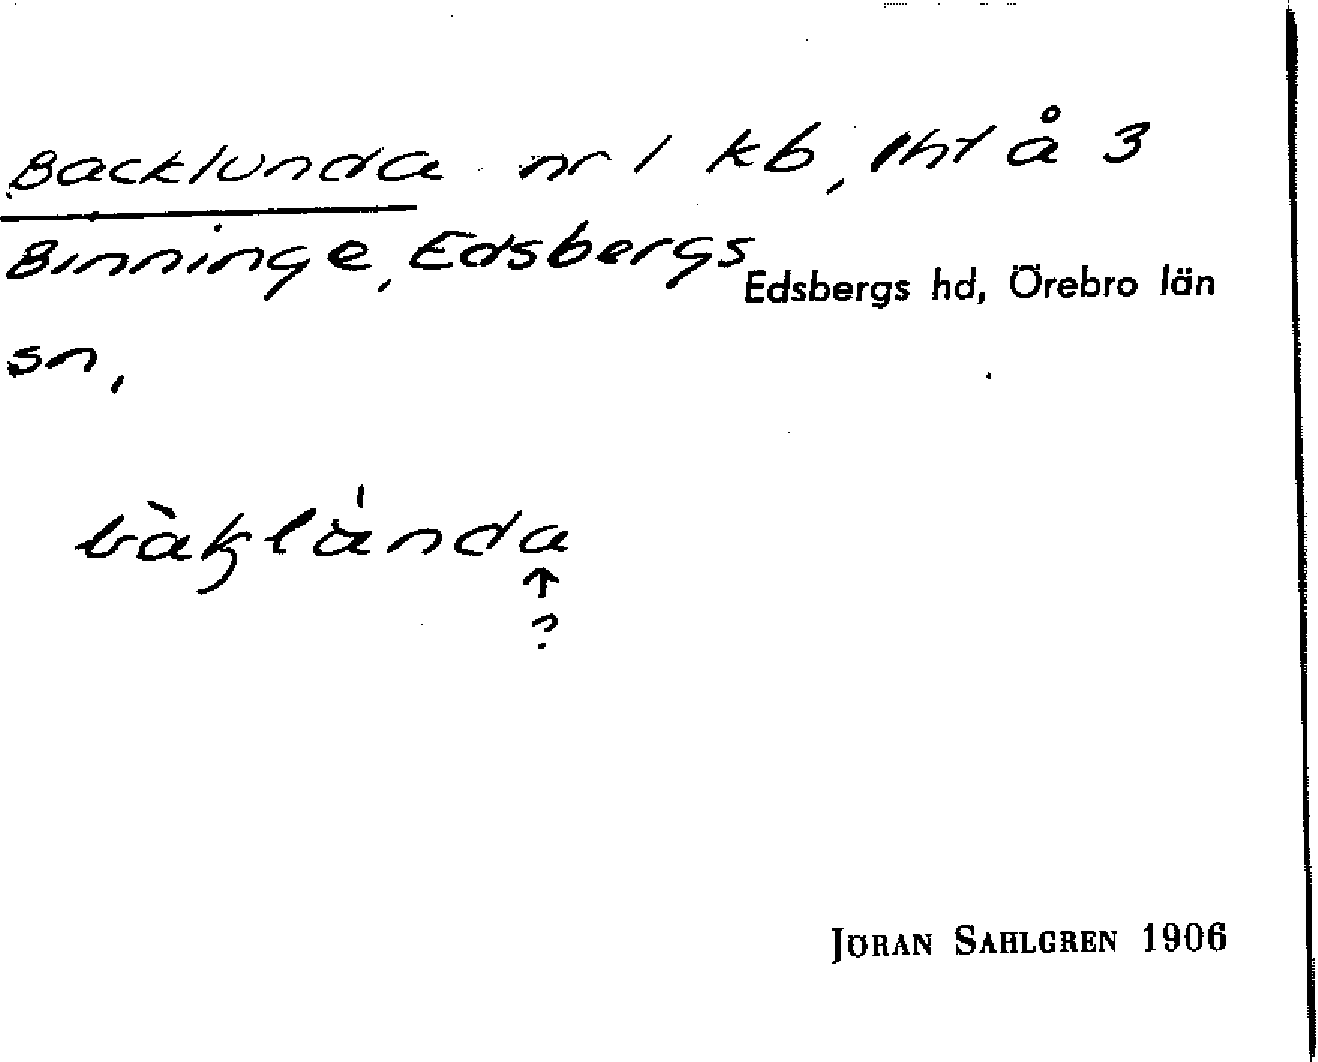 Backlunda nr 1 kb, 1ht å 3
Binninge, Edsbergs
Edsbergs hd, Örebro län
sn,
↑
?
JÖRAN SAHLGREN 1906